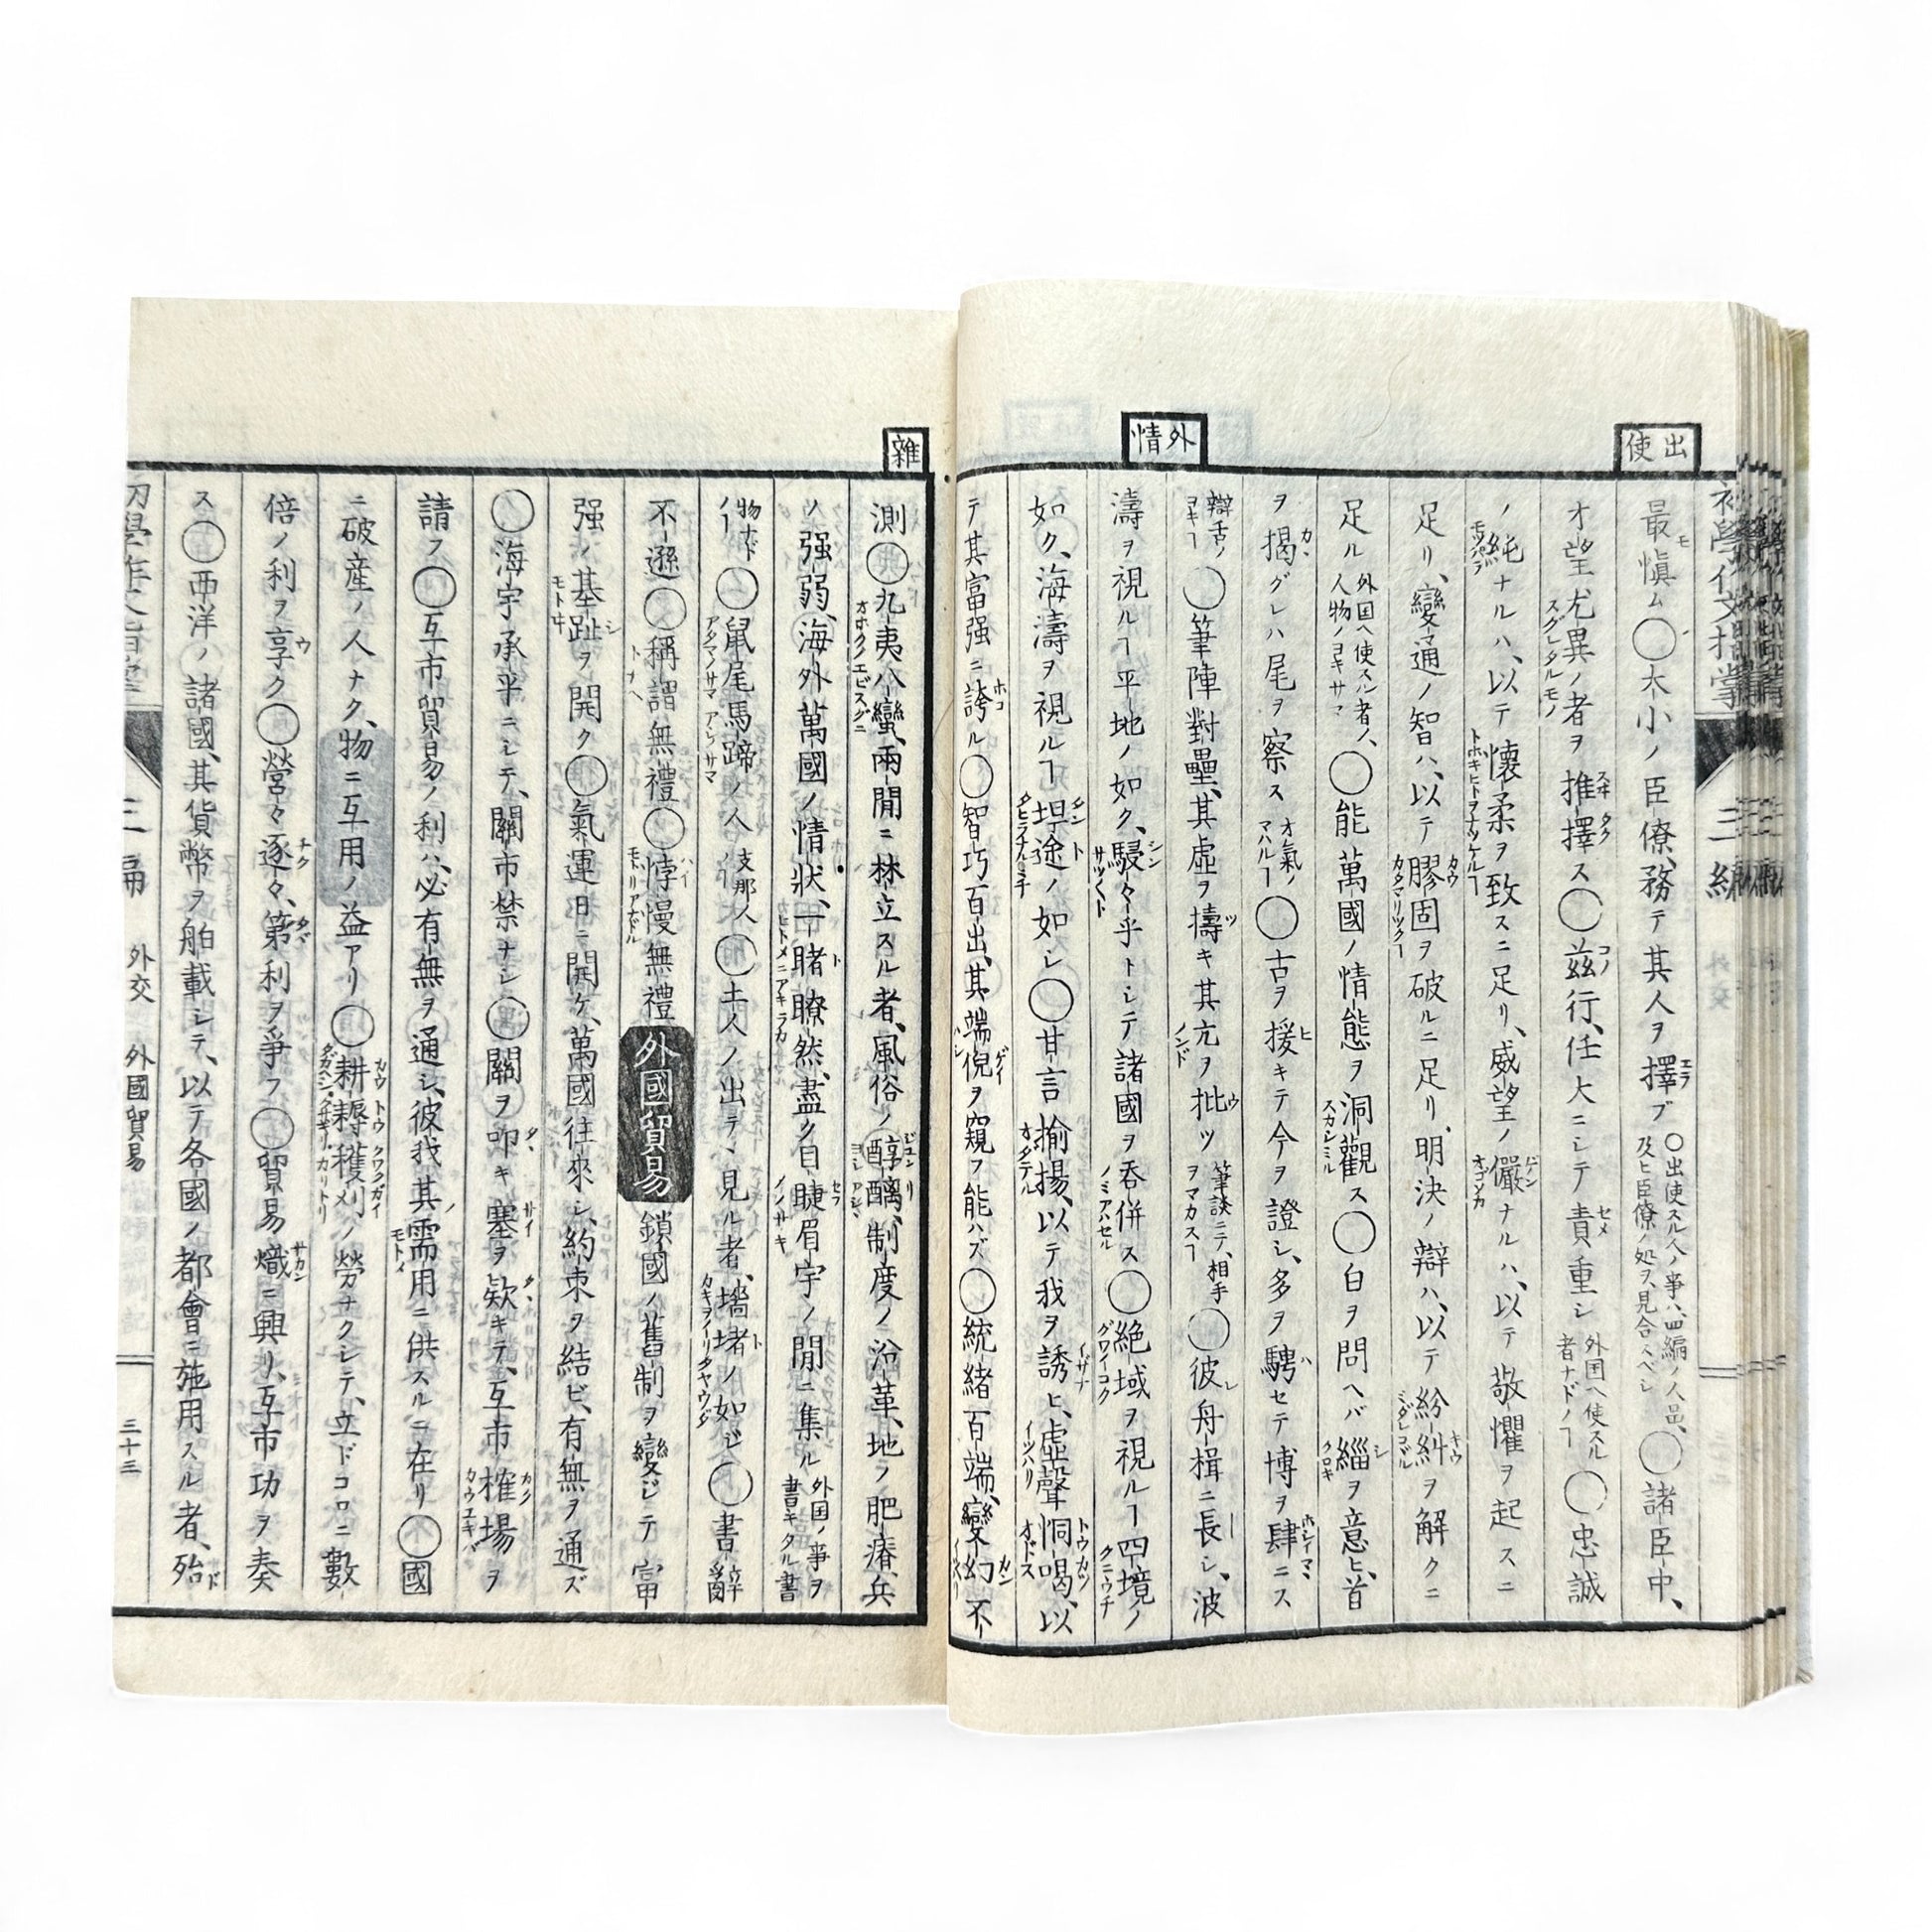 出使
外情
最愼ム◯大小ノ臣僚、務テ其人ヲ擇ブ ○出使スル人ノ事ハ、四編ノ人品、及ヒ臣僚ノ処ヲ見合スベシ ◯諸臣中、
才望尤異ノ者ヲ推擇ス◯玆行、任大ニシテ責重シ 外国ヘ使スル者ナドノヿ ◯忠誠
ノ純ナルハ、以テ懷柔ヲ致スニ足リ、威望ノ儼ナルハ、以テ敬懼ヲ起スニ
足リ、變通ノ智ハ、以テ膠固ヲ破ルニ足リ、明決ノ辯ハ、以テ紛糾ヲ解クニ
足ル 外国ヘ使スル者ノ、人物ノヨキサマ ◯能萬國ノ情態ヲ洞觀ス◯白ヲ問ヘバ緇ヲ意ヒ、首
ヲ揭グレハ尾ヲ察ス オ氣ノマハルヿ ◯古ヲ援キテ今ヲ證シ、多ヲ騁セテ博ヲ肆ニス
辯舌ノヨキヿ ◯筆陣對壘、其虛ヲ擣キ其亢ヲ批ツ 筆談ニテ、相手ヲマカスヿ ◯彼舟楫ニ長シ、波
濤ヲ視ルヿ平地ノ如ク、駸々乎トシテ諸國ヲ呑併ス◯絶域ヲ視ルヿ四境ノ
如ク、海濤ヲ視ルヿ坦途ノ如シ◯甘言揄揚、以テ我ヲ誘ヒ、虛聲恫喝、以
テ其富强ニ誇ル◯智巧百出、其端倪ヲ窺フ能ハズ◯統緒百端、變幻不
初學作文指掌 三編 外交
雜
測◯九夷八蠻、兩間ニ林立スル者、風俗ノ醇醨、制度ノ沿革、地ノ肥瘠、兵
ノ强弱、海外萬國ノ情狀、一睹瞭然、盡ク目睫眉宇ノ間ニ集ル 外国ノ事ヲ書キタル書
物ナドノヿ ◯鼠尾馬蹄ノ人 支那人 ◯土人ノ出テ、見ル者、墻堵ノ如シ◯書辭
不遜◯稱謂無禮◯悖慢無禮 外國貿易 鎖國ノ舊制ヲ變ジテ富
强ノ基趾ヲ開ク◯氣運日ニ開ケ、萬國往來シ、約束ヲ結ビ、有無ヲ通ズ
◯海宇承平ニシテ、關市禁ナシ◯關ヲ叩キ塞ヲ欵キテ、互市榷場ヲ
請フ◯互市貿易ノ利ハ、必有無ヲ通シ、彼我其需用ニ供スルニ在リ◯國
ニ破産ノ人ナク、物ニ互用ノ益アリ◯耕耨穫刈ノ勞ナクシテ、立ドコロニ數
倍ノ利ヲ享ク◯營々逐々、第利ヲ爭フ◯貿易熾ニ興リ、互市功ヲ奏
ス◯西洋ノ諸國、其貨幣ヲ舶載シテ、以テ各國ノ都會ニ施用スル者、殆
初學作文指掌 三編 外交 外國貿易 三十三